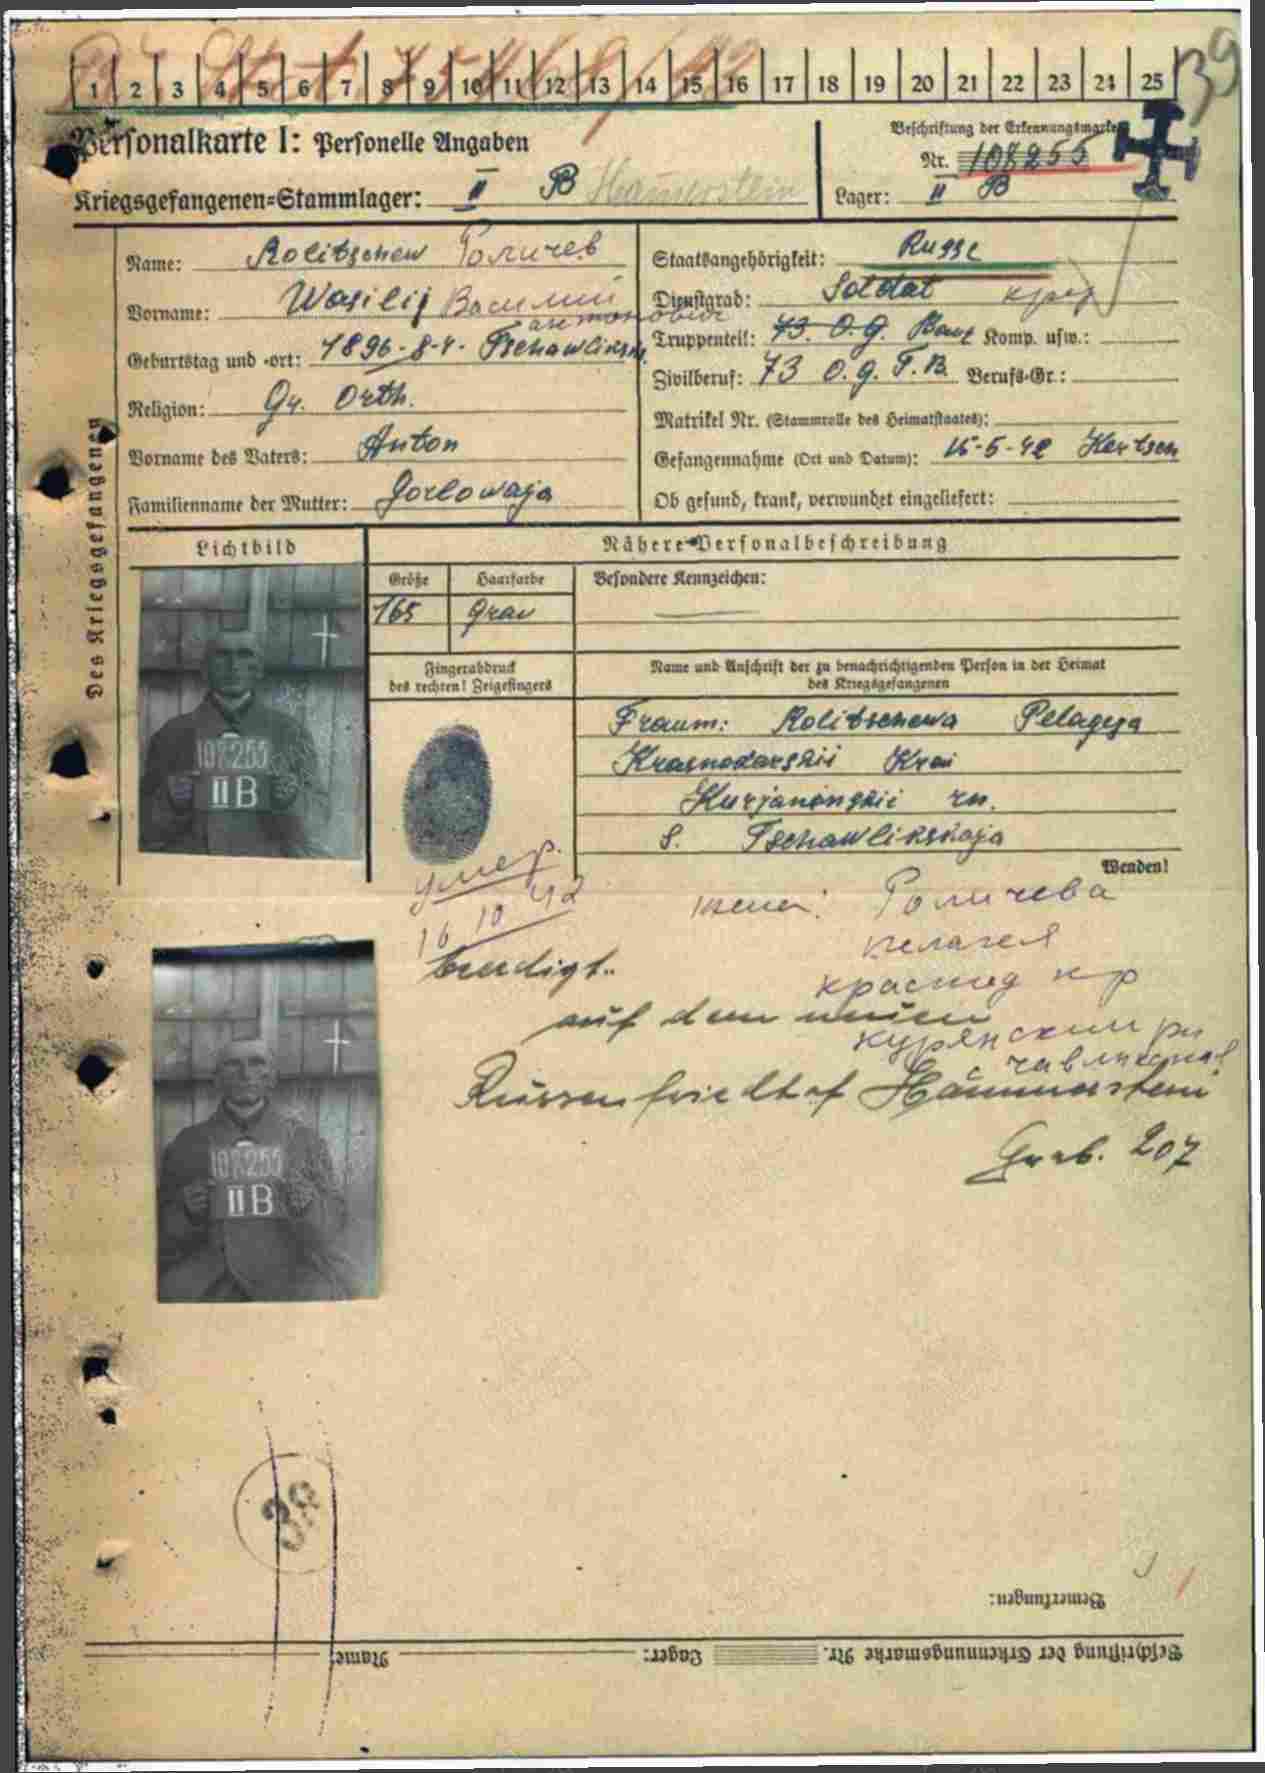 1 2 3 4 5 6 7 8 9 10 11 12 13 14 15 16 17 18 19 20 21 22 23 24 25
39
Personalkarte I: Personelle Angaben
Kriegsgefangenen-Stammlager: II B Hammerstein
Beschriftung der Erkennungsmarke
Nr. 108255
Lager: II B
Des Kriegsgefangenen
Name: Rolitschew Голичев
Vorname: Wasilij Василий
антонович
Geburtstag und -ort: 1896-8-4- Tschawliksk.
Religion: Gr. Orth.
Vorname des Vaters: Anton
Familienname der Mutter: Gorlowaja
Staatsangehörigkeit: Russe
Dienstgrad: Soldat кр
Truppenteil: 73. O.G. Komp. usw.:
Zivilberuf: 73 O.G. T.B. Berufs-Gr.:
Matrikel Nr. (Stammrolle des Heimatstaates):
Gefangennahme (Ort und Datum): 15-5-42 Kertsch
Ob gesund, krank, verwundet eingeliefert:
Lichtbild
Nähere Personalbeschreibung
Größe Haarfarbe Besondere Kennzeichen:
165 grau
Fingerabdruck
des rechten! Zeigefingers
Name und Anschrift der zu benachrichtigenden Person in der Heimat
des Kriegsgefangenen
Frau: Rolitschewa Pelageja
Krasnodarskii Krai
Kurjaninskii rn.
S. Tschawlikskaja
Wenden!
107255
II B
умер.
16 10 42
жена: Голичева
пелагея
краснод кр
курянский рн
с чавликская
beerdigt
auf dem neuen
Russenfriedhof Hammerstein
Grab. 207
107255
II B
38
Bemerkungen:
Beschriftung der Erkennungsmarke Nr. Lager: Name: